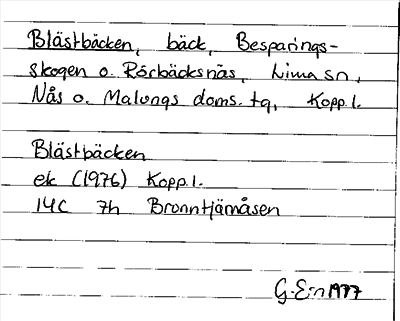 Blästbäcken, bäck, Besparings-
skogen o. Rörbäcksnäs, Lima sn,
Nås o. Malungs doms. tg, Kopp.l.
Blästbäcken
ek (1976) Kopp.l.
14C 7h Bronntjärnåsen
G.E-n 1977